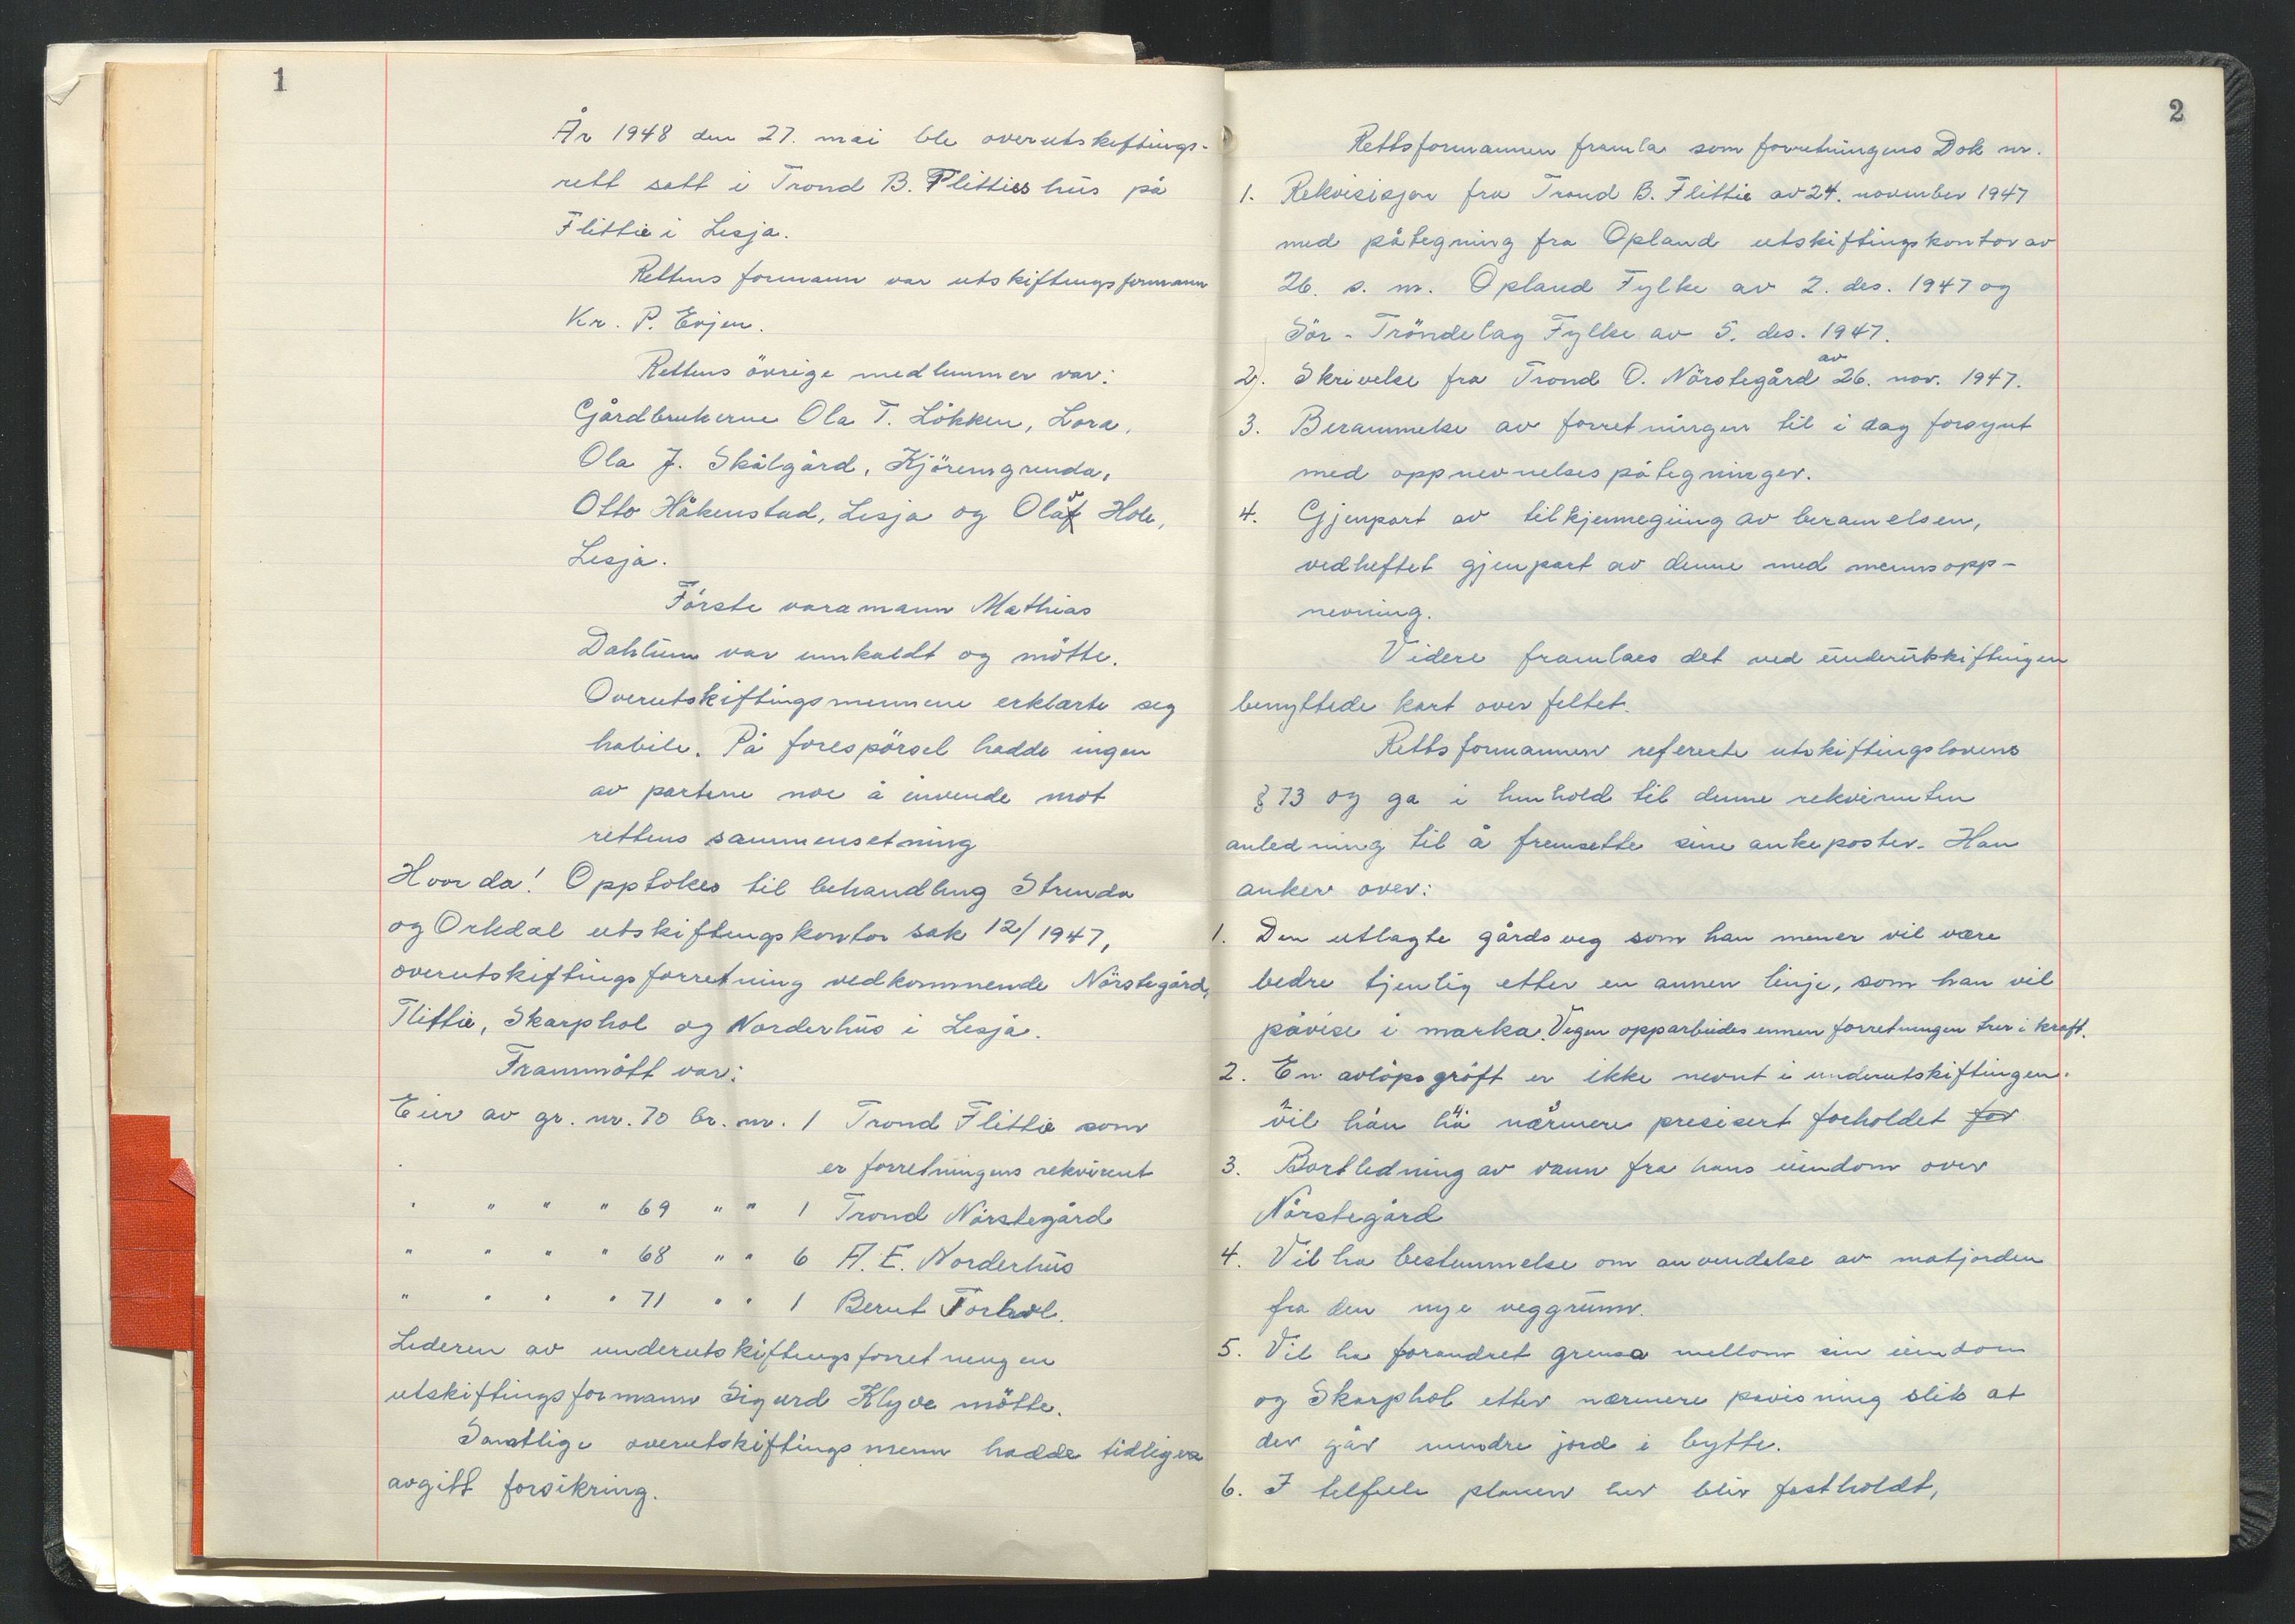 1
År 1948 den 27. mai ble overutskiftings-
rett satt i Trond B. Flitties hus på
Flittie i Lesja.
Rettens formann var utskiftingsformann
Kr. P. Evjen.
Rettens övrige medlemmer var:
Gårdbrukerne Ola T. Lökken, Lora,
Ola J. Skålgård, Kjöremsgrenda,
Otto Håkenstad, Lesja og Olav Hole,
Lesja.
Förste varamann Mathias
Dahlum var innkaldt og mötte.
Overutskiftingsmennene erklærte seg
habile. På forespörsel hadde ingen
av partene noe å invende mot
rettens sammensetning
Hvor da! Opptokes til behandling Strinda
og Orkdal utskiftingskontor sak 12/1947,
overutskiftingsforretning vedkommende Nörstegård,
Flittie, Skarphol og Norderhus i Lesja.
Frammött var:
Eier av gr. nr. 70 br. nr. 1 Trond Flittie som
er forretningens rekvirent
" " " " 69 " " 1 Trond Nörstegård
" " " " 68 " " 6 A. E. Norderhus
" " " " 71 " " 1 Bernt Forhol.
Lederen av underutskiftingsforretningen
utskiftingsformann Sigurd Klyve mötte.
Samtlige overutskiftingsmenn hadde tidligere
avgitt forsikring.
2
Rettsformannen framla som forretningens Dok nr.
1. Rekvisisjon fra Trond B. Flittie av 24. november 1947
med påtegning fra Opland utskiftingskontor av
26. s. m. Opland Fylke av 2. des. 1947 og
Sör-Tröndelag Fylke av 5. des. 1947.
2. Skrivelse fra Trond O. Nörstegård av 26. nov. 1947.
3. Berammelse av forretningen til i dag forsynt
med oppnevnelsespåtegninger.
4. Gjenpart av tilkjennegiing av beramelsen,
vedheftet gjenpart av denne med mennsopp-
nevning.
Videre framlaes det ved underutskiftingen
benyttede kart over feltet.
Rettsformannen refererte utskiftingslovens
§ 73 og ga i henhold til denne rekvirenten
anledning til å fremsette sine ankeposter. Han
anker over:
1. Den utlagte gårdsveg som han mener vil være
bedre tjenlig etter en annen linje, som han vil
påvise i marka. Vegen opparbeides innen forretningen trer i kraft.
2. En avlöpsgröft er ikke nevnt i underutskiftingen.
vil han ha nærmere presisert forholdet for
3. Bortledning av vann fra hans eiendom over
Nörstegård
4. Vil ha bestemmelse om anvendelse av matjorden
fra den nye veggrunn.
5. Vil ha forandret grensa mellom sin eiendom
og Skarphol etter nærmere påvisning slik at
der går mindre jord i bytte.
6. I tilfelle planen her blir fastholdt,